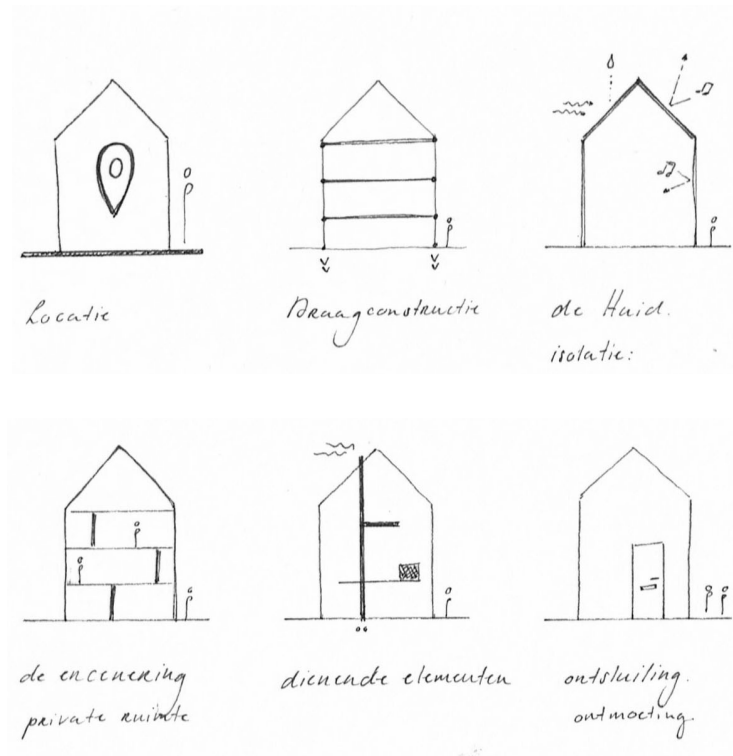 Locatie
Draagconstructie
de Huid.
isolatie:
de encenering
private ruimte
dienende elementen
ontsluiling.
ontmoeting.